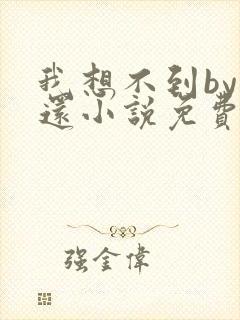 我想不到by
還小說免費
強金偉